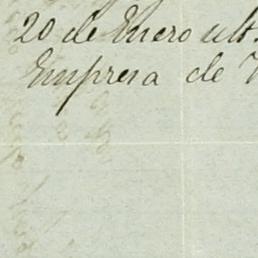 20 de Enero ult.
Empresa de